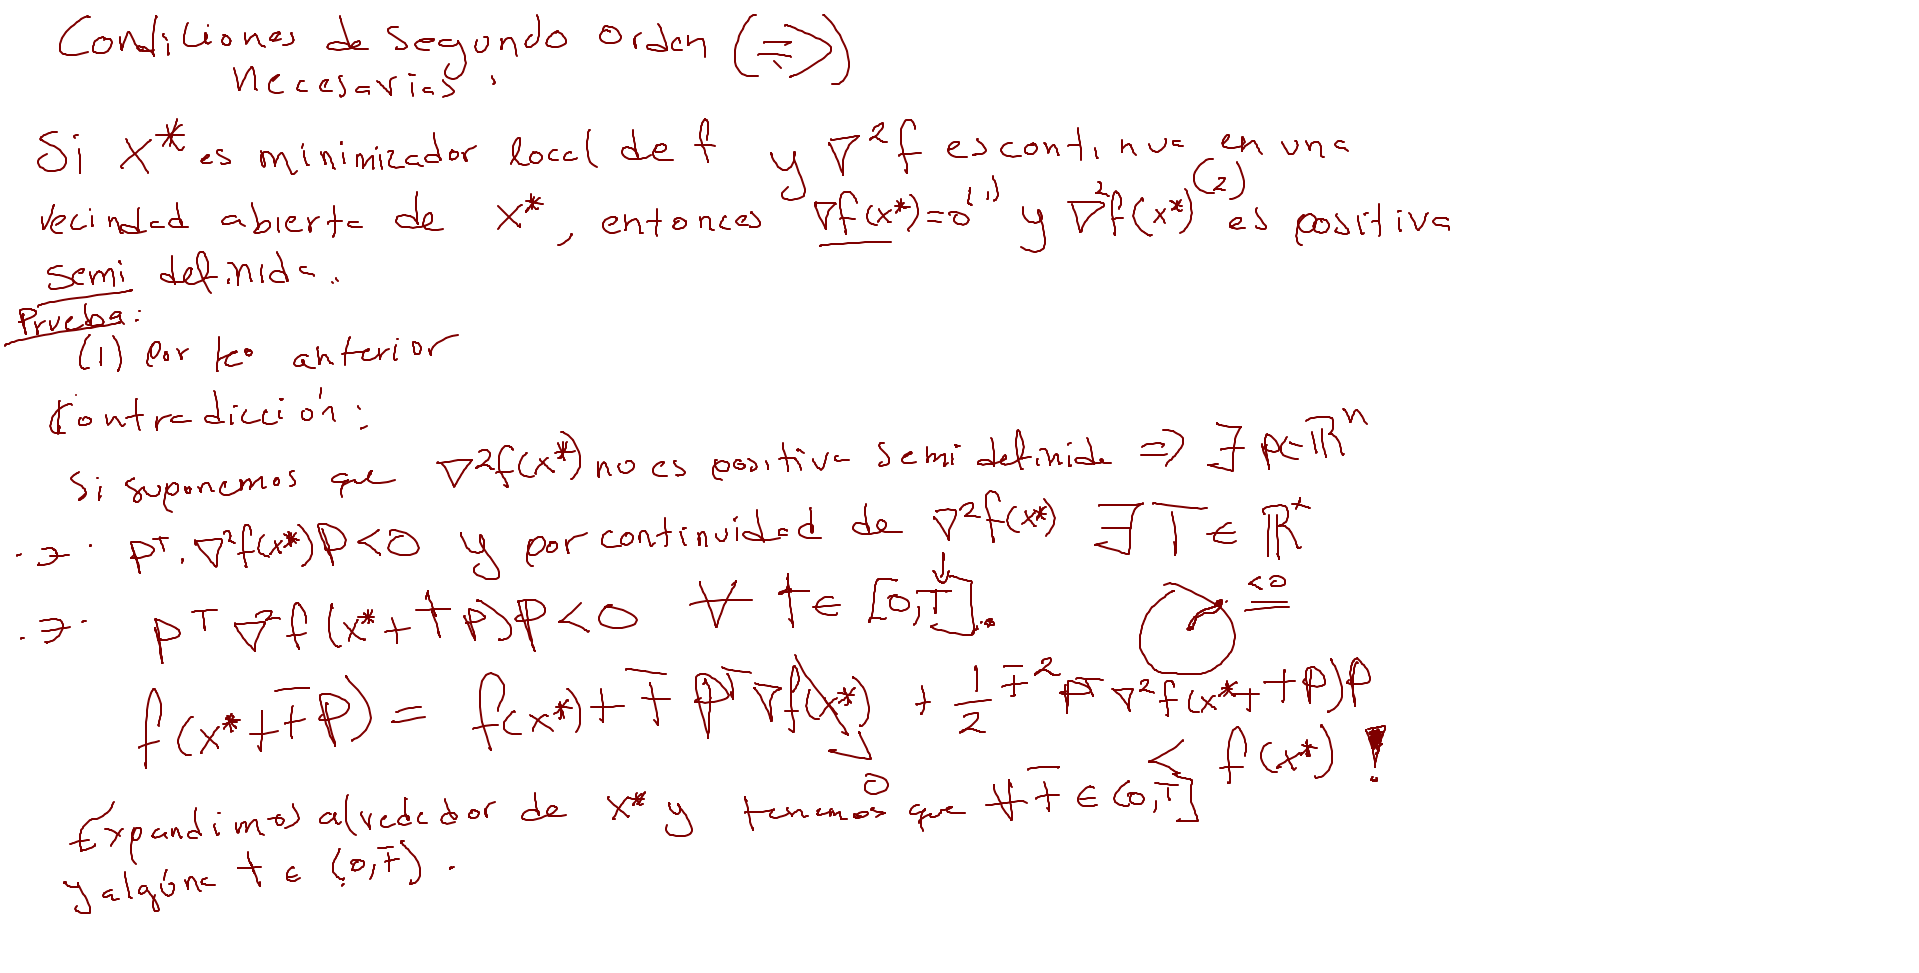 Condiciones de segundo orden (⇒)
necesarias.
Si x* es minimizador local de f y ∇²f es continua en una
vecindad abierta de x*, entonces ∇f(x*)=0 (1) y ∇²f(x*) (2) es positiva
semi definida.
Prueba:
(1) por teo anterior
Contradicción:
Si suponemos que ∇²f(x*) no es positiva semi definida ⇒ ∃ p∈ℝⁿ
·∋· pᵀ·∇²f(x*)p<0 y por continuidad de ∇²f(x*) ∃ T ∈ ℝ⁺
·∋· pᵀ∇²f(x*+tp)p<0 ∀ t∈[0,T].
<0
f(x*+t̄p) = f(x*)+t̄ pᵀ∇f(x*) + 1/2 t̄² pᵀ∇²f(x*+tp)p
0
< f(x*) !
Expandimos alrededor de x* y tenemos que ∀ t̄ ∈ (0,T]
y alguna t ∈ (0,t̄).